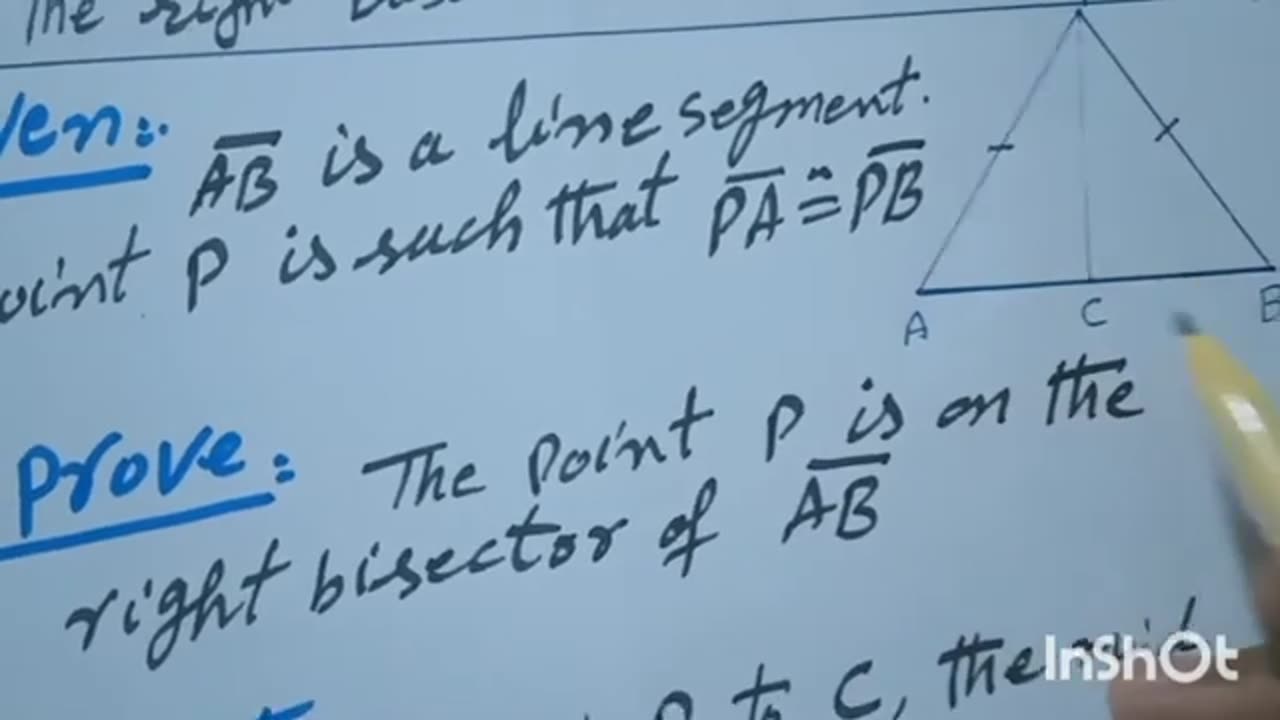 The right
ven:
AB is a line segment.
oint P is such that PA ≅ PB
A C B
Prove: The Point P is on the
right bisector of AB
P to C, the mid
InShOt